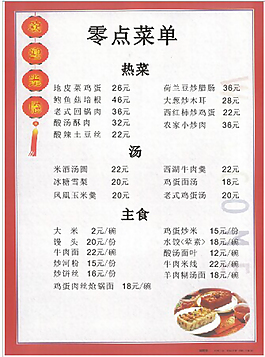 零点菜单
热菜
地皮菜鸡蛋 26元 荷兰豆炒腊肠 36元
鲍鱼菇培根 46元 大葱炒木耳 28元
老式回锅肉 36元 西红柿炒鸡蛋 22元
酸汤酥肉 32元 农家小炒肉 36元
酸辣土豆丝 22元
汤
米酒汤圆 22元 西湖牛肉羹 22元
冰糖雪梨 20元 鸡蛋面汤 18元
凤凰玉米羹 20元 老式鸡蛋汤 20元
主食
大米 2元/碗 鸡蛋炒米 15元/份
馒头 20元/份 水饺<荤素> 18元/碗
牛肉面 22元/碗 酸汤面叶 12元/碗
炒河粉 15元/份 牛肉米线 22元/碗
炒饼丝 16元/份 羊肉糊汤面 18元/碗
鸡蛋肉丝炝锅面 18元/碗